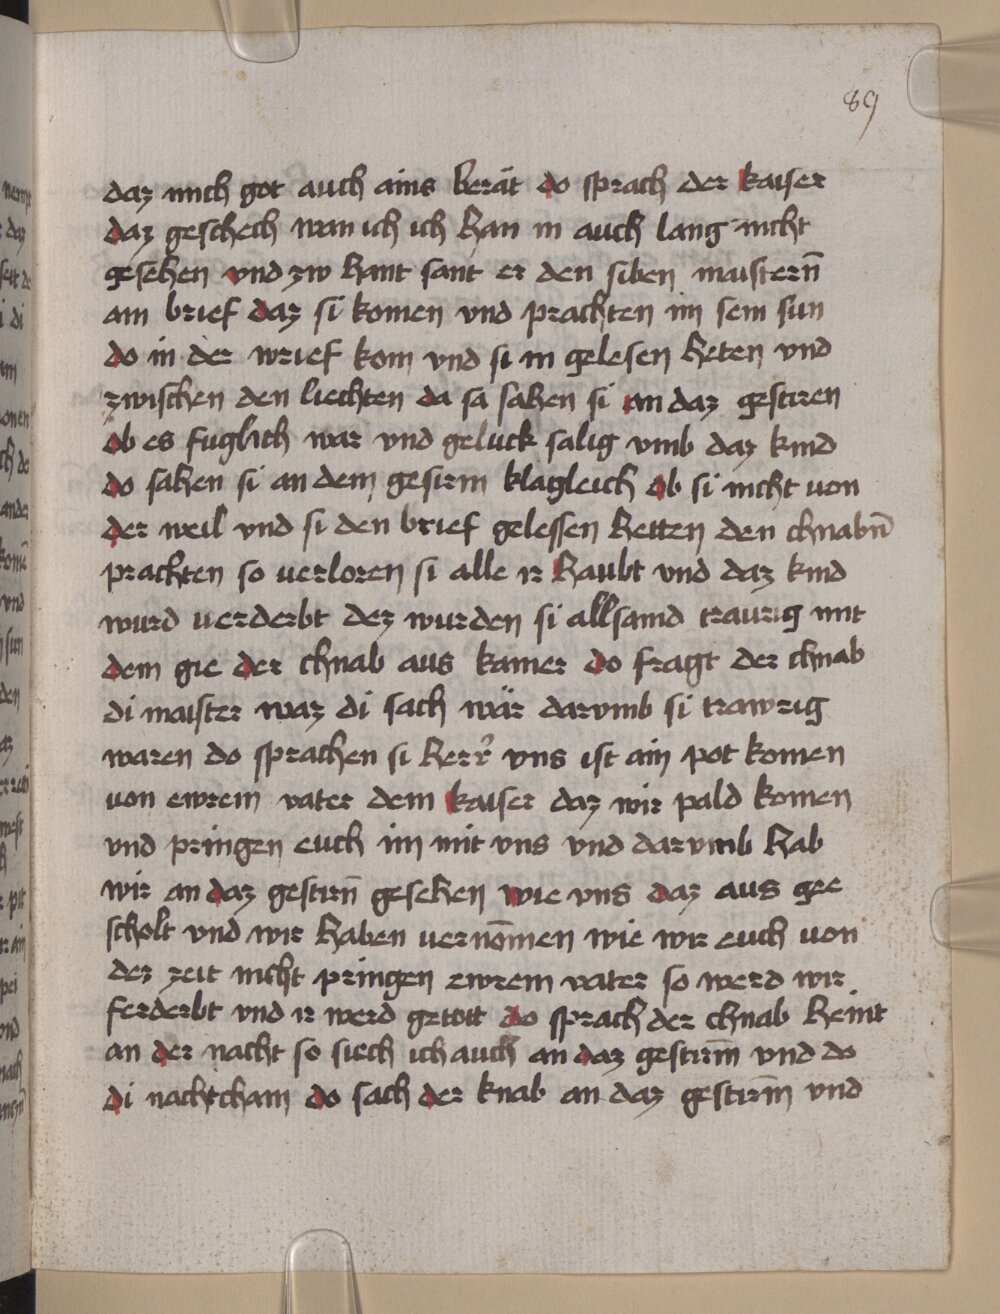 89
daz mich got auch ains berät do sprach der kaiser
daz geschech wan ich ich han in auch lang nicht
gesehen vnd zw hant sant er den siben maistern̄
ain brief daz si komen vnd prachten im sein sun
do in der wrief kom vnd si in gelesen heten vnd
zwischen den liechten da sa sahen si an daz gestiren
ob es fuglich war vnd geluck salig vmb daz kind
do sahen si an dem gestirn klagleich ob si nicht von
der weil vnd si den brief gelessen hetten den chnabn̄
prachten so verloren si alle ir haubt vnd daz kind
wurd verderbt dez wurden si allsamd traurig mit
dem gie der chnab aus kamer do fragt der chnab
di maister waz di sach wär darvmb si trawrig
waren do sprachen si herr̄ vns ist ain pot komen
von ewrem vater dem kaiser daz wir pald komen
vnd pringen euch im mit vns vnd darvmb hab
wir an daz gestirn̄ gesehen wie vns daz aus gee
scholt vnd wir haben vernōmen wie wir euch von
dez zeit nicht pringen ewrem vater so werd wir
ferderbt vnd ir werd getott do sprach der chnab heint
an der nacht so siech ich auch an daz gestirn̄ vnd do
di nacht cham do sach der knab an daz gestirn̄ vnd